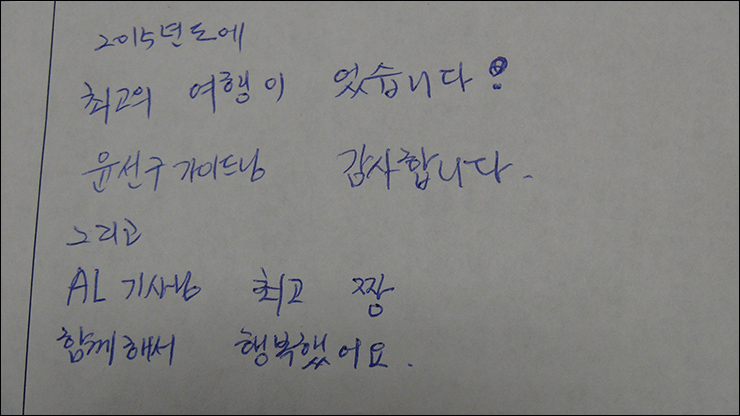 2015년도에
최고의 여행이 었습니다!
윤선구 가이드님 감사합니다.
그리고
AL 기사님 최고 짱
함께해서 행복했어요.